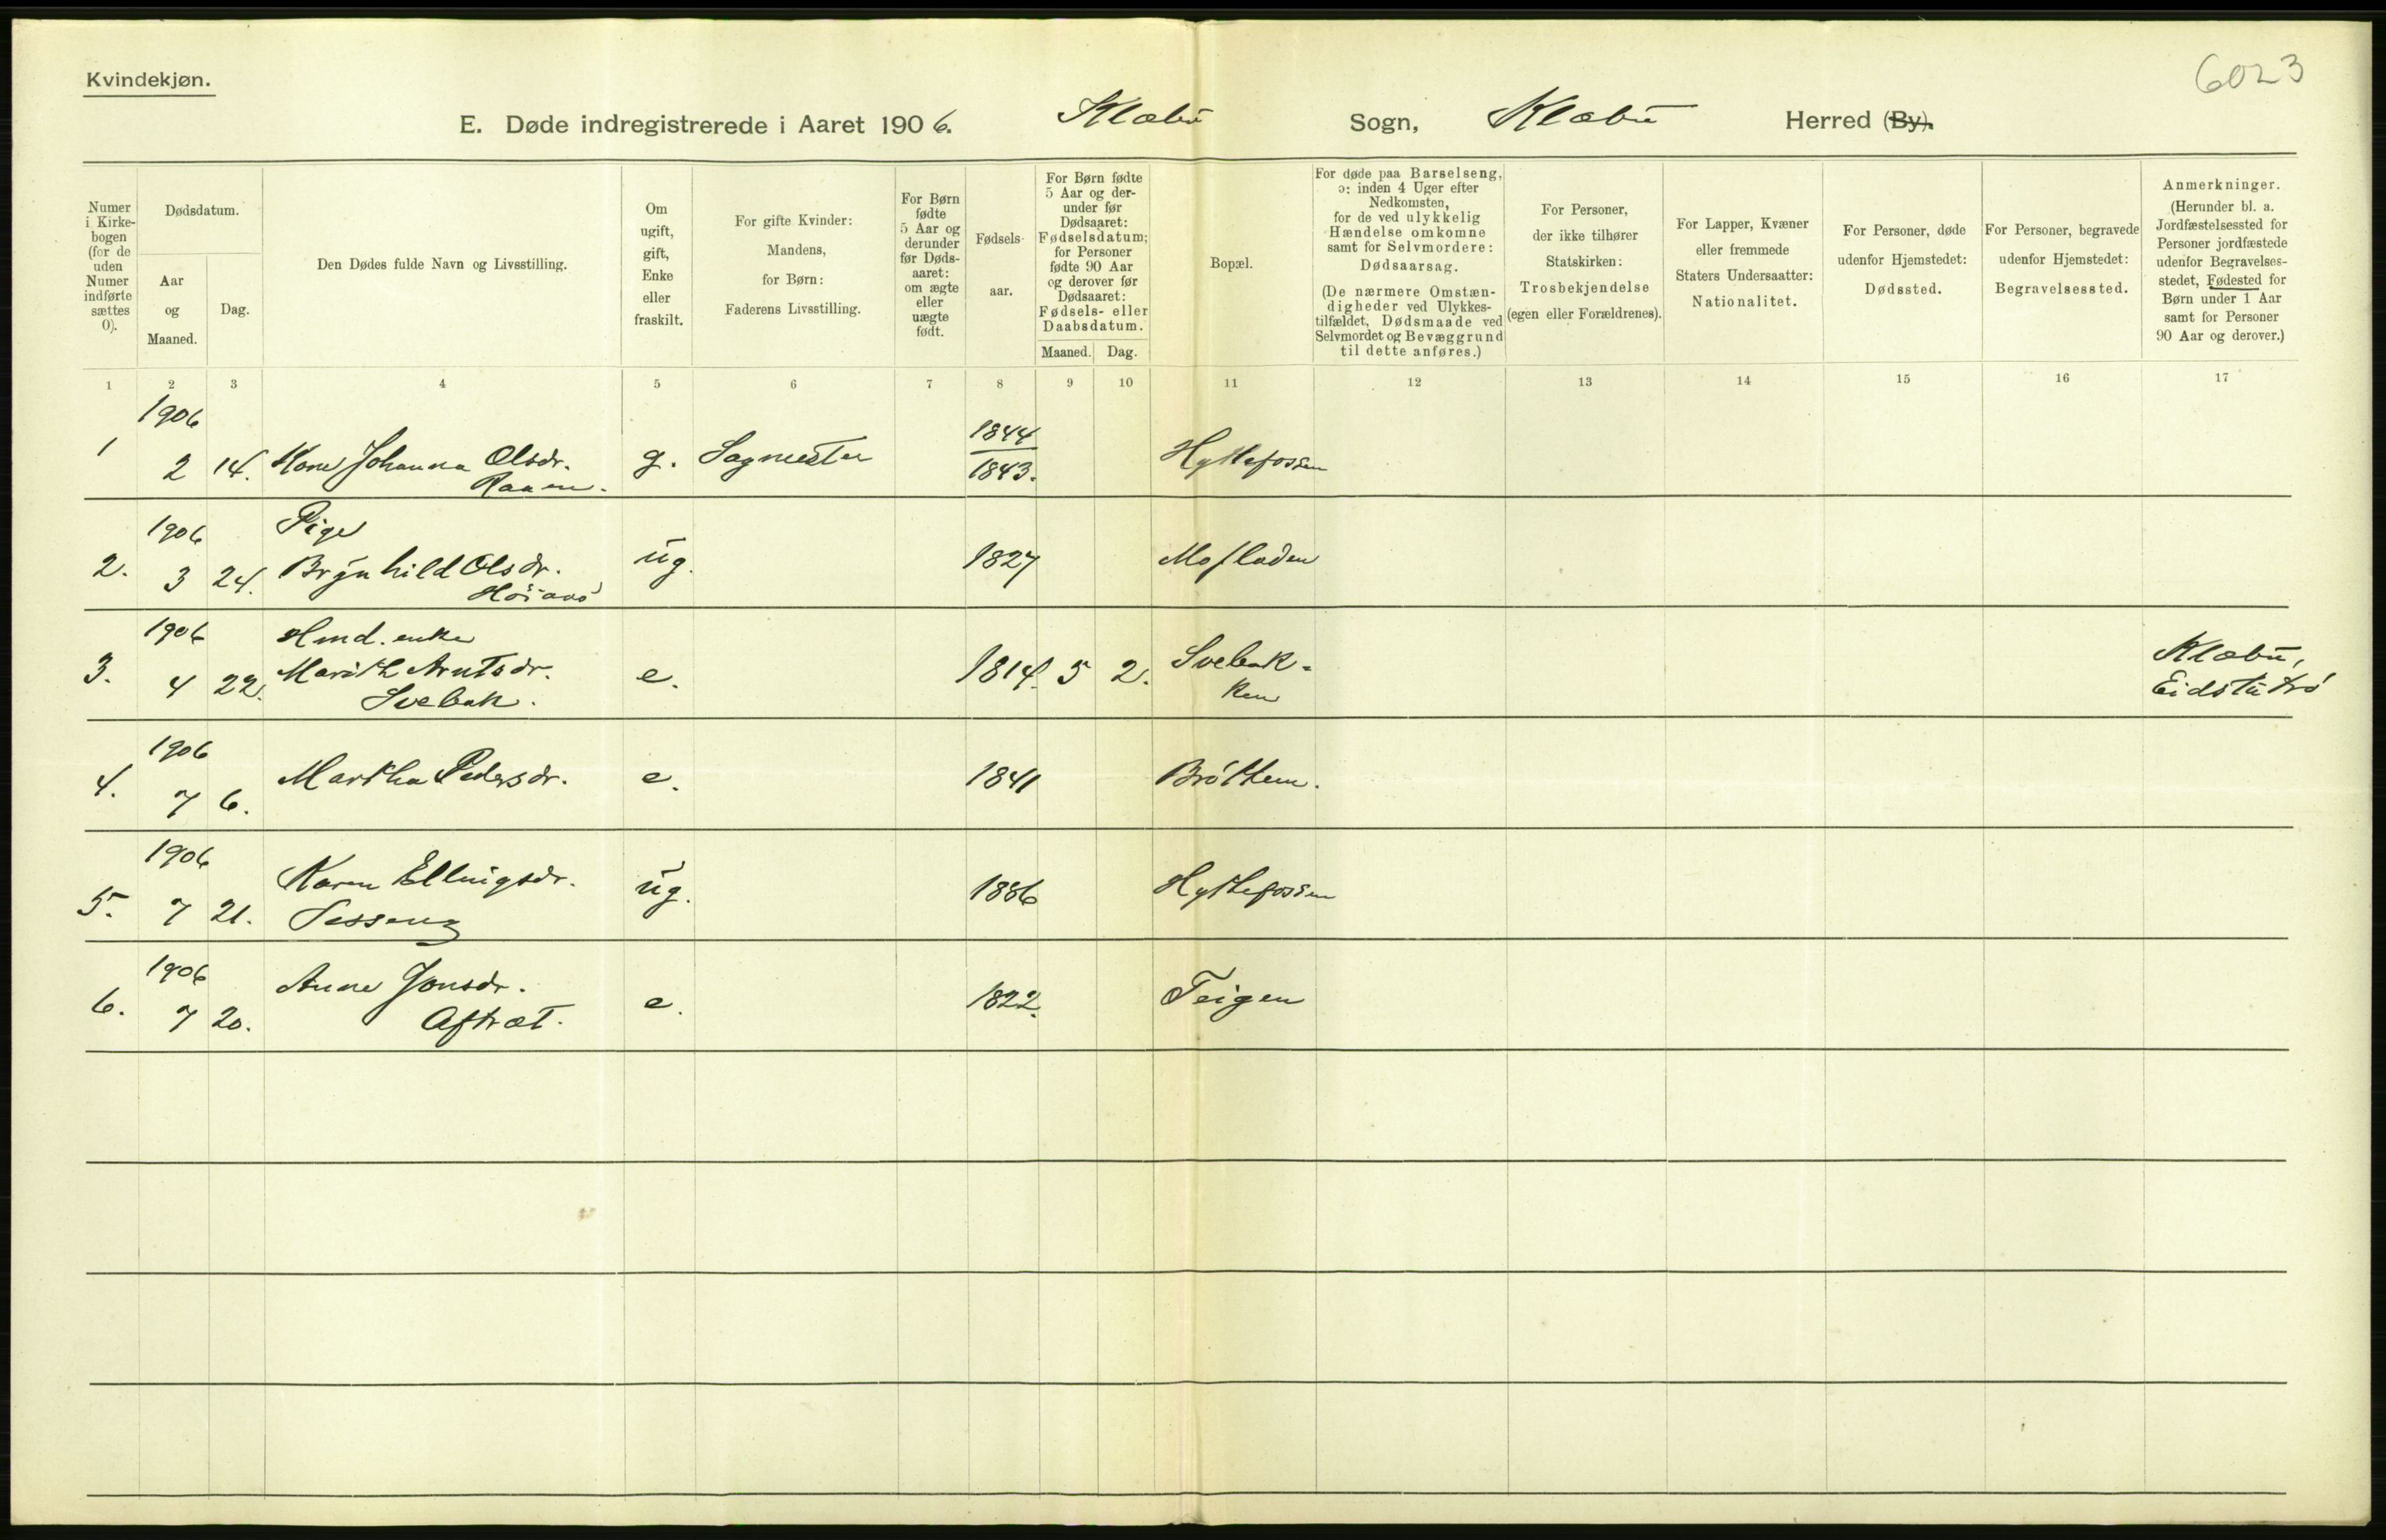 6023
Kvindekjøn.
E. Døde indregistrerede i Aaret 1906. Klæbu Sogn, Klæbu Herred (By).
Numer i Kirkebogen (for de uden Numer indførte sættes 0).
Dødsdatum.
Aar og Maaned.
Dag.
Den Dødes fulde Navn og Livsstilling.
Om ugift, gift, Enke eller fraskilt.
For gifte Kvinder: Mandens, for Børn: Faderens Livsstilling.
For Børn fødte 5 Aar og derunder før Dødsaaret: om ægte eller uægte født.
Fødselsaar.
For Børn fødte 5 Aar og derunder før Dødsaaret: Fødselsdatum; for Personer fødte 90 Aar og derover før Dødsaaret: Fødsels- eller Daabsdatum.
Maaned. Dag.
Bopæl.
For døde paa Barselseng, ɔ: inden 4 Uger efter Nedkomsten, for de ved ulykkelig Hændelse omkomne samt for Selvmordere: Dødsaarsag.
(De nærmere Omstændigheder ved Ulykkestilfældet, Dødsmaade ved Selvmordet og Bevæggrund til dette anføres.)
For Personer, der ikke tilhører Statskirken: Trosbekjendelse (egen eller Forældrenes).
For Lapper, Kvæner eller fremmede Staters Undersaatter: Nationalitet.
For Personer, døde udenfor Hjemstedet: Dødssted.
For Personer, begravede udenfor Hjemstedet: Begravelsessted.
Anmerkninger. (Herunder bl. a. Jordfæstelsessted for Personer jordfæstede udenfor Begravelsesstedet, Fødested for Børn under 1 Aar samt for Personer 90 Aar og derover.)
1 2 3 4 5 6 7 8 9 10 11 12 13 14 15 16 17
1906 1844
1 2 14. Kone Johanna Olsdr. g. Sagmester 1843. Hyttefossen
Raaen.
1906 Pige
2. 3 24. Brynhild Olsdr. ug. 1827 Mosladen
Höiaas
1906 Hmd. enke
3. 4 22. Marith Arntsdr. e. 1814. 5 2. Svebak- Klæbu,
Svebak. ken Eidstutrö
1906
4. 7 6. Martha Pedersdr. e. 1841 Bröttem.
1906
5. 7 21. Karen Ellingsdr. ug. 1886 Hyttefossen
Sesseng
1906
6. 7 20. Anne Jonsdr. e. 1822. Teigen
Aftræt.